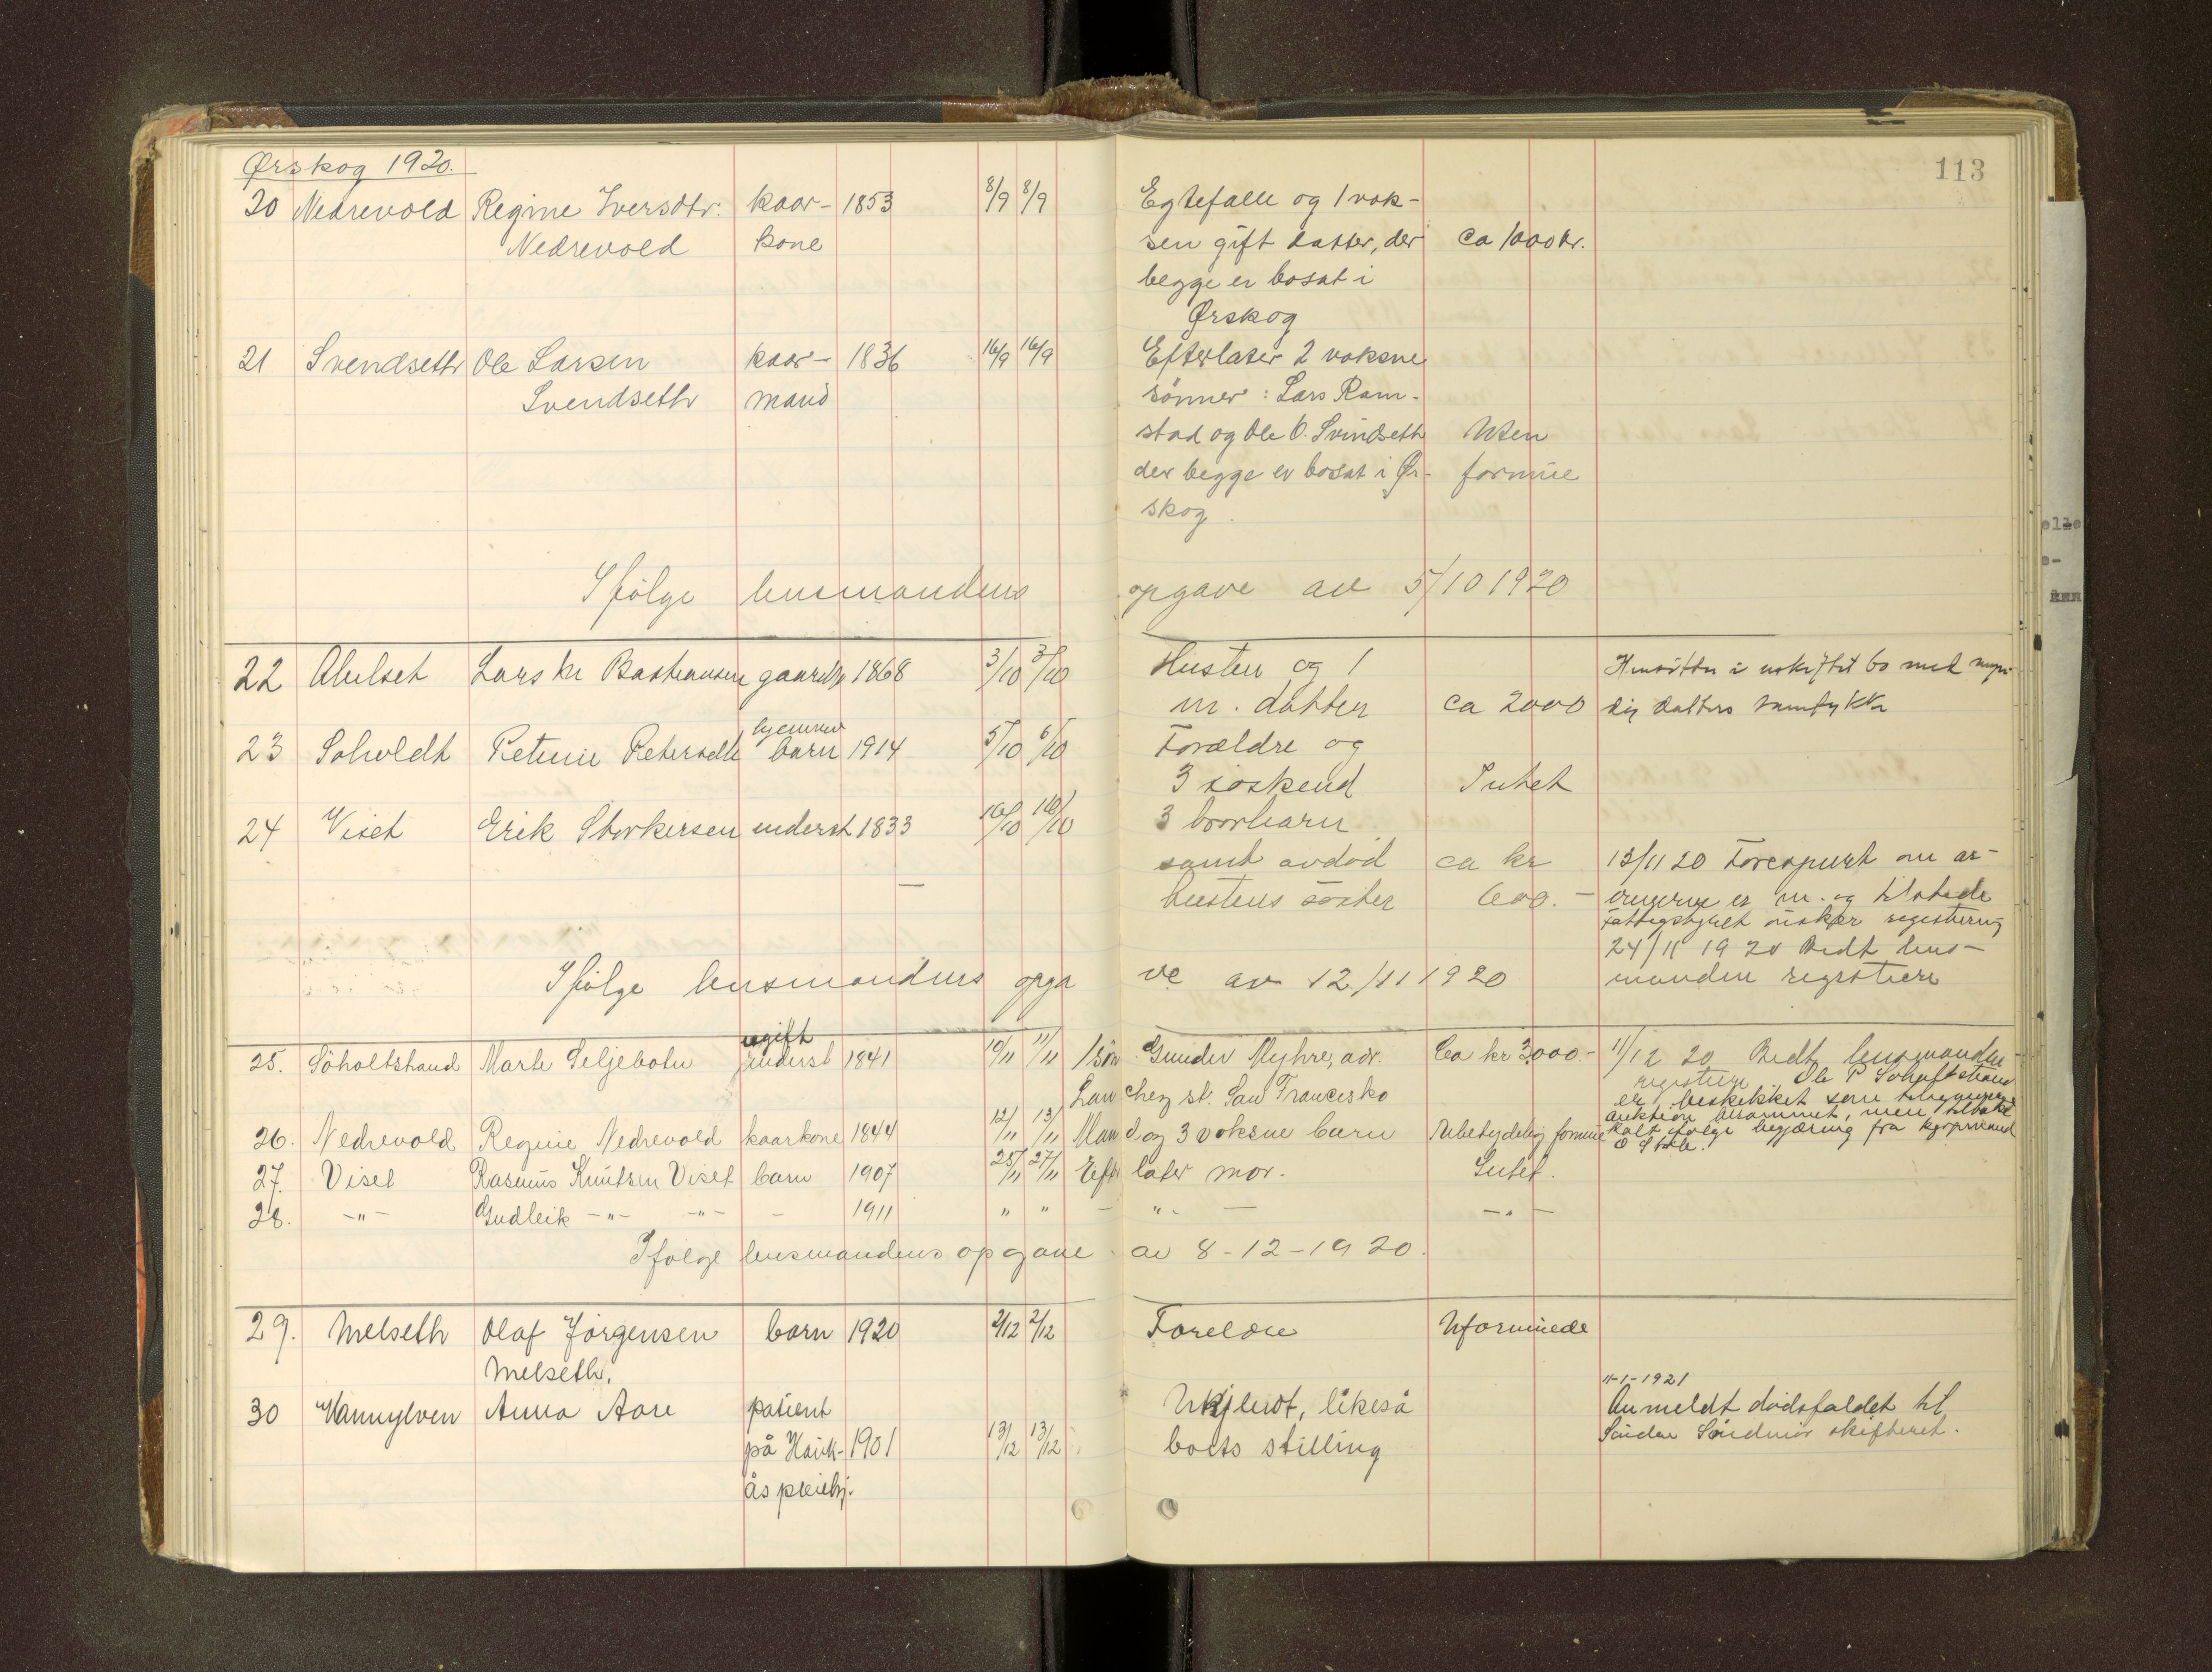 Ørskog 1920.
113
20 Nedrevold Regine Iversdtr. kaar- 1853 8/9 8/9 Egtefælle og 1 vok-
Nedrevold kone sen gift datter, der ca 1000 kr.
begge er bosat i
Ørskog
21 Svendseth Ole Larsen kaar- 1836 16/9 16/9 Efterlater 2 voksne
Svendseth mand sønner: Lars Ram-
stad og Ole O. Svindseth Uten
der begge er bosat i Ør- formue
skog.
Ifølge lensmandens opgave av 5/10 1920
22 Lars Kr Bastiansen 1868 3/10 3/10 Husten og 1 i uskiftet bo med
m. datter ca 2000 dig datters samtykke
23 Soholdt Petrine Petersdtr barn 1914 5/10 6/10 Forældre og
3 søskend Intet
24 Viset Erik Storkersen inderst 1833 16/10 16/10 3 brorbarn
samt avdød ca kr 13/11 20 Forespurt om ar-
hustens søster 600.- er m. og
fattigstyret ønsker registering
24/11 1920 Bedt lens-
Ifølge lensmandens opgave av 12/11 1920 manden registrere
ugift
25. Söholtstrand Marte Seljebotn inderst 1841 10/11 11/11 1 søn Gunder Myhre, adr. Ca kr 3000.- 11/12 20 Bedt lensmanden
Lanchez st. San Francisko registrere Ole P Soholtstrand
er beskikket som
auktion berammet, men tilbake
26. Nedrevold Regine Nedrevold kaarkone 1844 12/11 13/11 Mand og 3 voksne barn Ubetydelig formue kalt ifølge begjæring fra
27. Viset Rasmus Knutsen Viset barn 1907 25/11 27/11 Efterlater mor. Intet.
28. -"- Gudleik -"- -"- - 1911 " " - "- - -"-
Ifølge lensmandens opgave av 8-12-1920.
29. Melseth Olaf Jørgensen barn 1920 2/12 2/12 Foreldre Uformuede
Melseth.
11-1-1921
30 Vannylven Anna Aare patient Ukjendt, likeså Anmeldt dødsfaldet til
på Hauk- 1901 13/12 13/12 boets stilling Söndre Söndmör skifteret.
ås pleiehj.